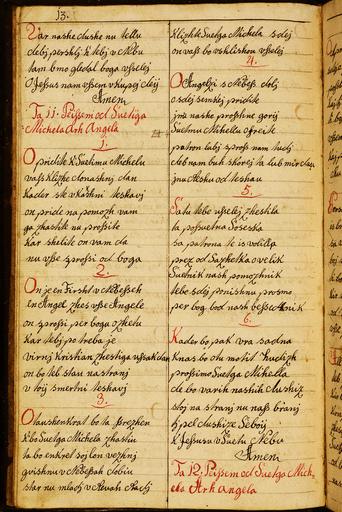 13.
Kar nashe dushe nu tellu
de bi pershli k tebi v Nebu
tam bmo gledal boga vsselej
O Jessus nam vssem v kupej dei
Amen
Ta 11. Peissem od Suetiga
Michela Ark Angela
1.
O pridite k Suetimu Michelu
vass klizhe donashni dan
kader ste v kashni teshavi
on pride na pomozh vam
ga zhastite nu prossite
kar shelite on vam da
nu vsse sprossi od boga
2.
On je en Firsht v Nebessih
en Angel zhes vsse Angele
on sprossi per bogu zhetu
kar tebi potreba je
virni kristian zhestiga vssak dan
on bo teb stau na strani
v toji smertni teshavi
3.
O lau shenkrat bo ta
k bo Suetga Michela zhastiu
ta bo enkrat sojlen vezhni
gvishnu v Nebessih dobiu
star nu mladi
klizhite Suetga Michela sdej
on vass bo vshlishou vsselej
4.
O Angelzi s Nebess doli
sdej semkej pridite
inu nashe proshne gori
Suetmu Michellu ofreite
patron lubi sprossi nam tudi
de b nam buh shorej ta lubi mir dau
inu flisku od teshau
5.
Satu tebe vsselej zhestila
ta possuetna Soseska
sa patrona te is volilla
prez od Sazhetka ovelik
Suetnik nash pomozhnik
tebe sdej ponishnu prosmo
per bog bod nash bessednik
6.
Kader bo pak vra sadna
k nas bo otu motit hudizh
prossimo Suetga Mihella
de bo varih nashih dushiz
stoj na strani nu nass brani
pel dushize Seboj
k Jessusu v Suetu Nebu
Amen
Ta 12. Peissem od Suetga Mich-
ela Ark Angela